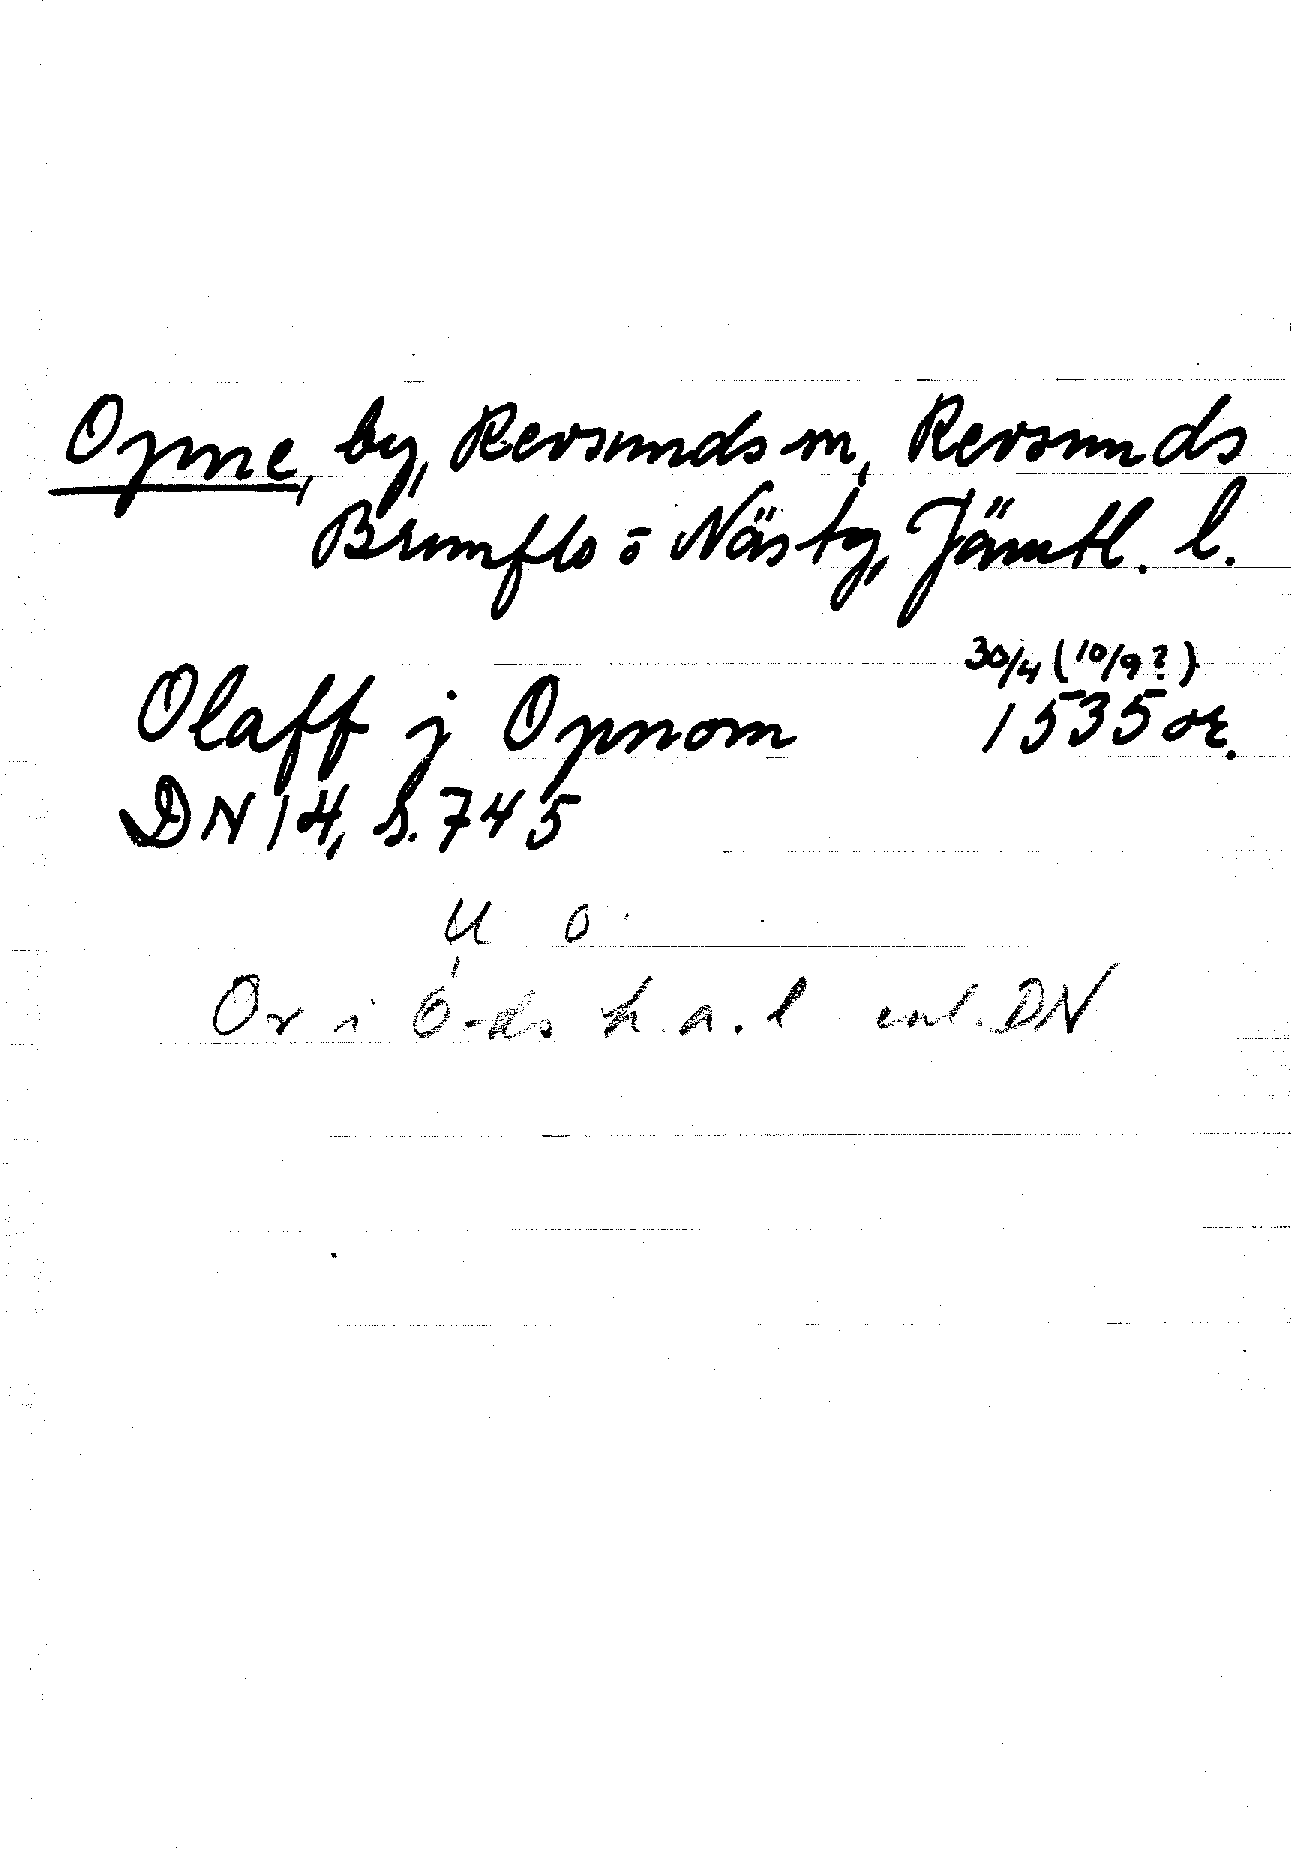 Opne, by, Revsunds sn, Revsunds
Brunflo o Näs tg, Jämtl. l.
30/4 (10/9?)
Olaff j Opnom 1535 or.
DN 14, s. 745
U O
Or i Ö-ds h.a.l enl. DN